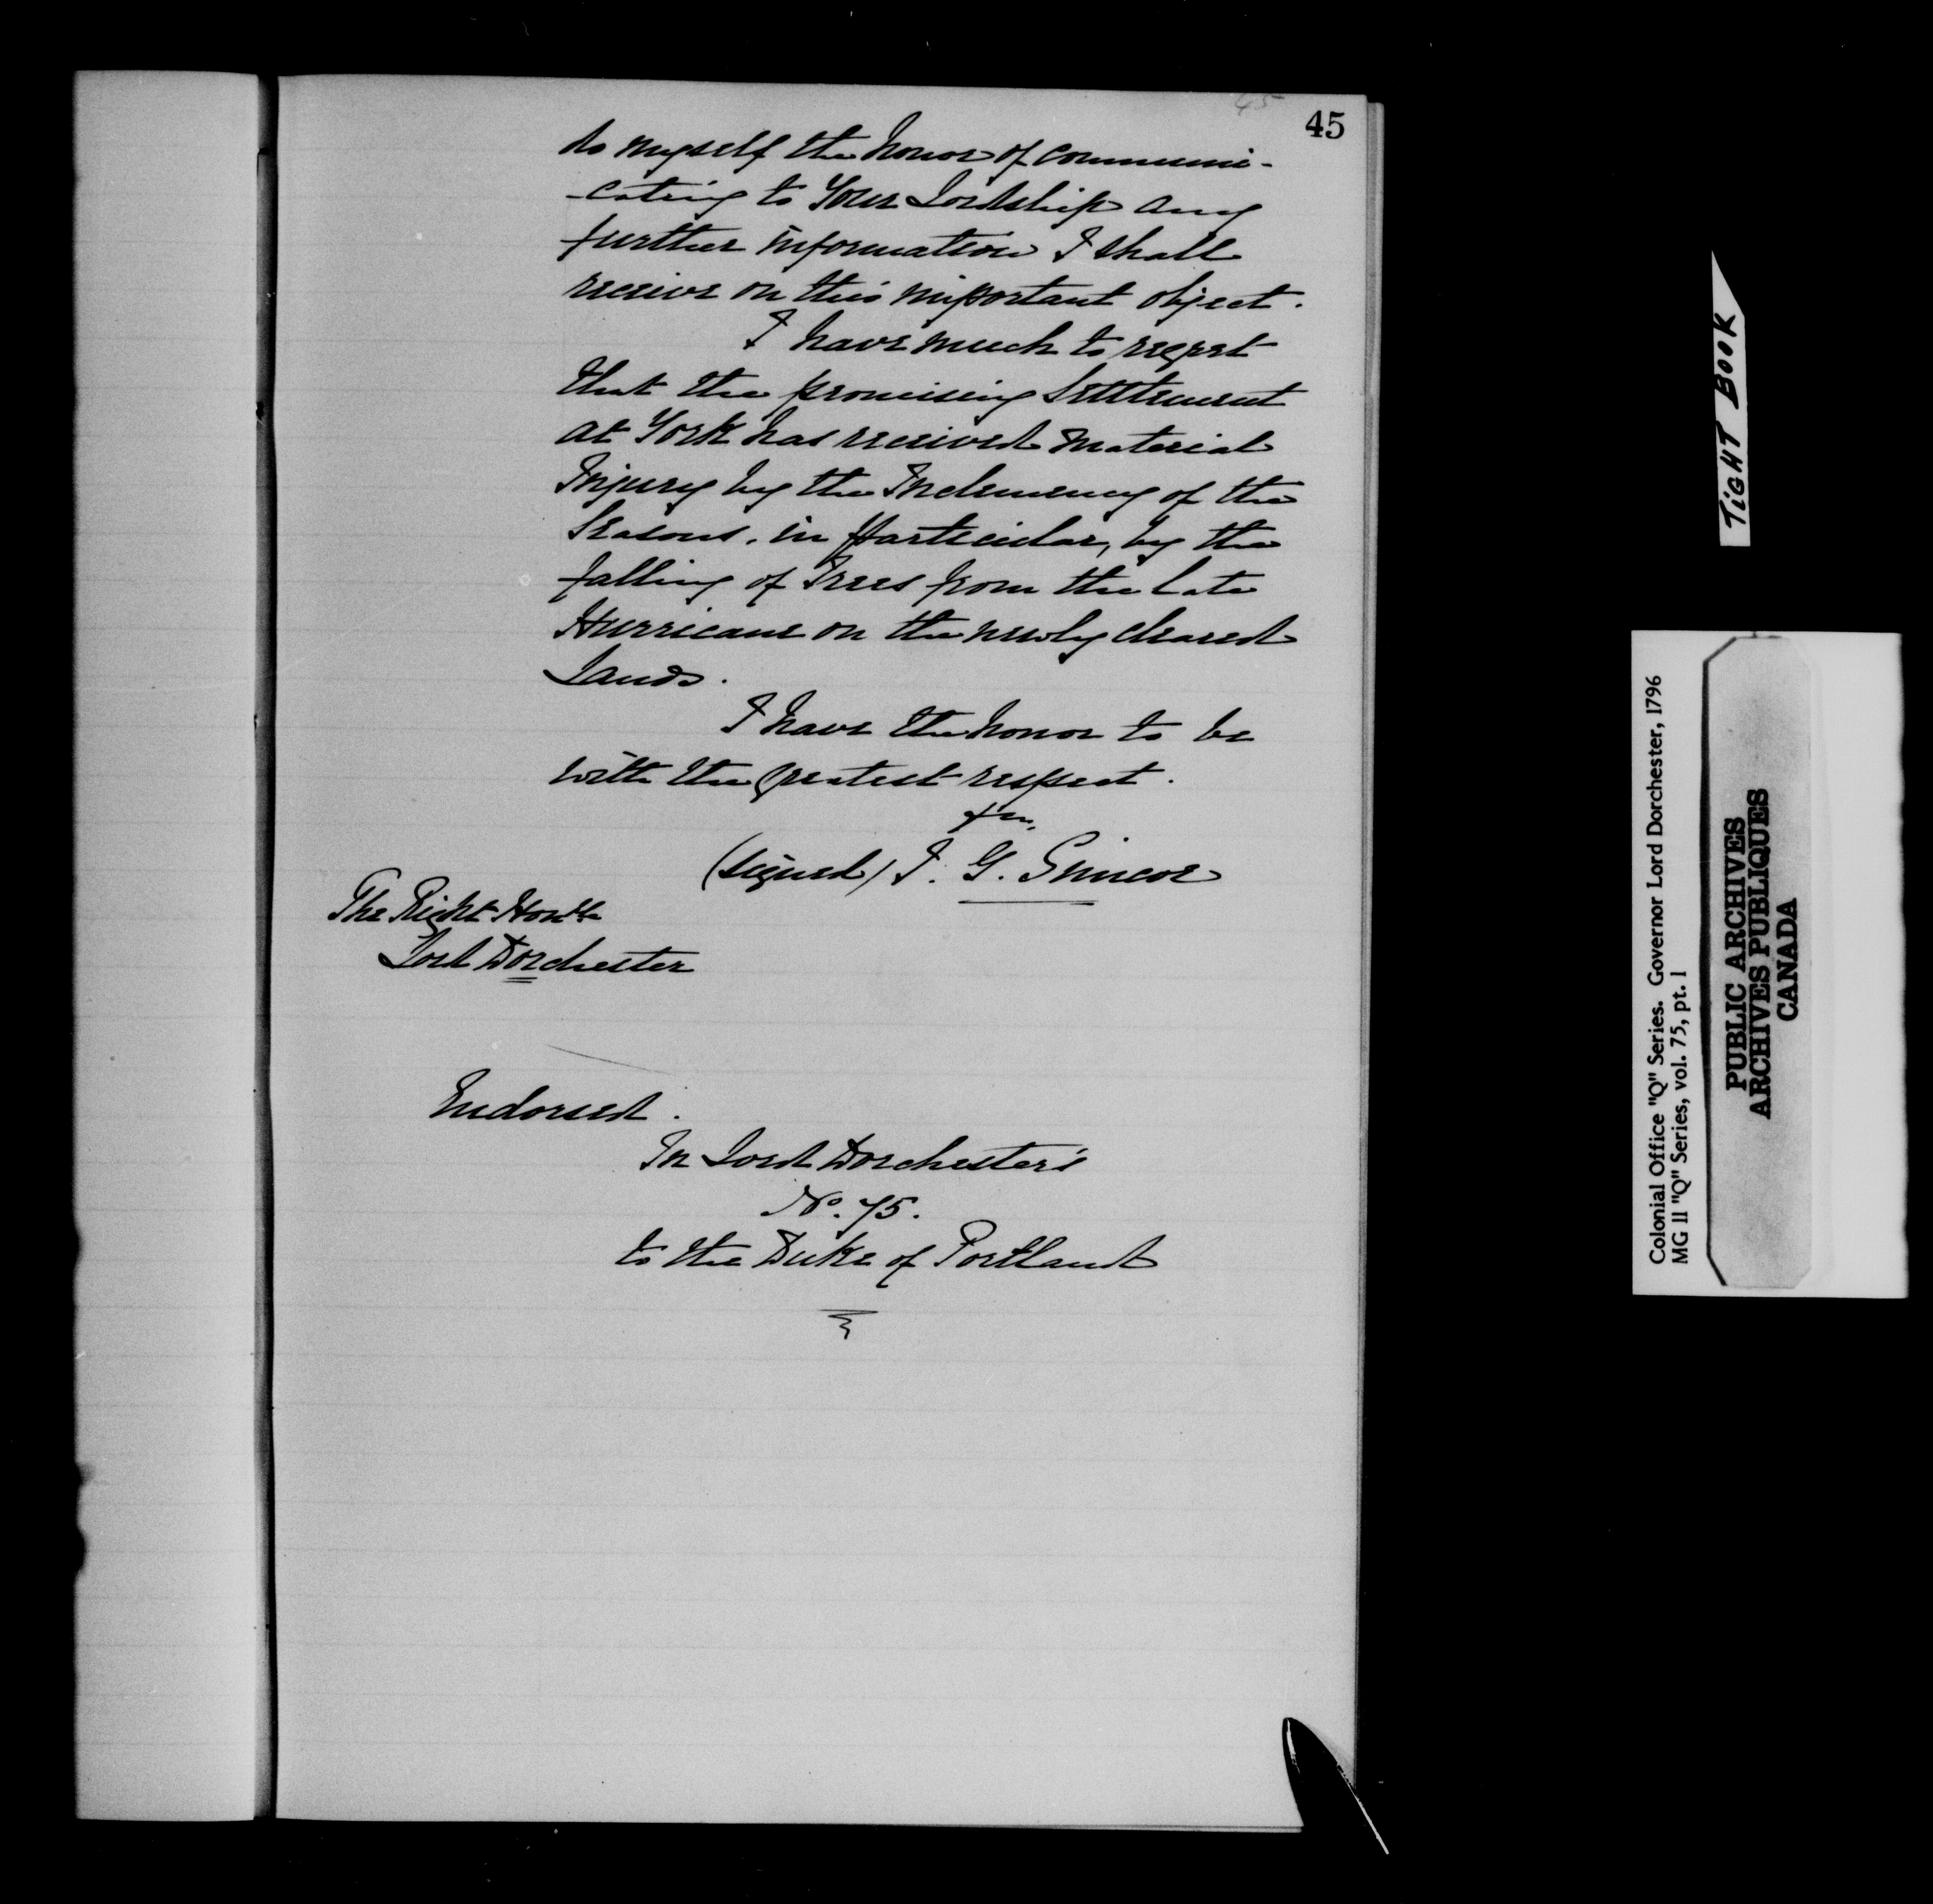 45
45
to myself the honor of communi-
-cating to Your Lordship any
further information I shall
receive on this important object.
I have much to regret
that the promising Settlement
at York has received material
Injury by the Inclemency of the
Seasons. in particular, by the
falling of Trees from the late
Hurricane on the newly cleared
Lands.
I have the honor to be
with the greatest respect.
&c.
(signed) J. G. Simcoe
The Right Honble
Lord Dorchester
Endorsed.
In Lord Dorchester's
No. 75.
to the Duke of Portland
TIGHT BOOK
Colonial Office "Q" Series. Governor Lord Dorchester, 1796
MG 11 "Q" Series, vol. 75, pt. 1
PUBLIC ARCHIVES
ARCHIVES PUBLIQUES
CANADA